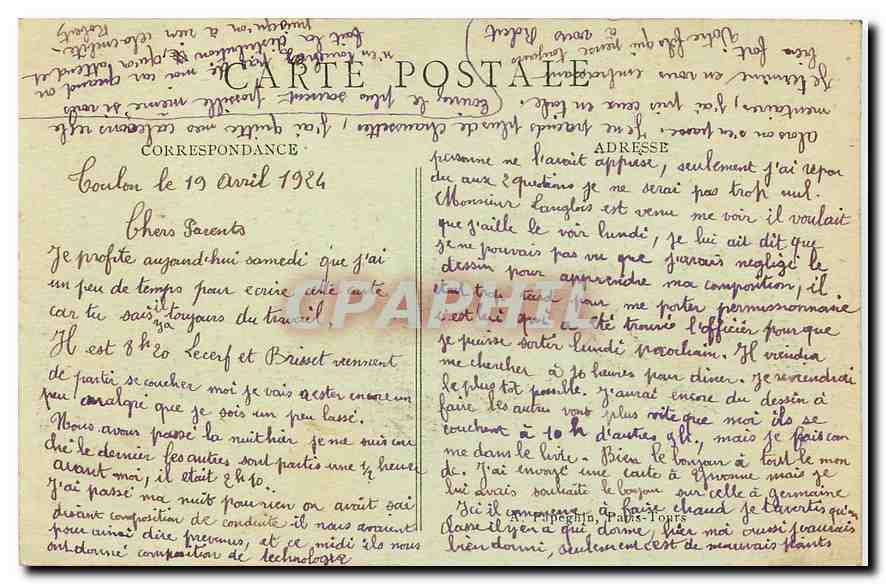 CARTE POSTALE
CORRESPONDANCE
ADRESSE
Toulon le 19 Avril 1924
Chers Parents
Je profite aujourd'hui samedi que j'ai
un peu de temps pour ecrire cette carte
car tu sais il y a toujours du travail.
Il est 8h20 Lecerf et Brisset viennent
de partir se coucher moi je vais rester encore un
peu malgré que je sois un peu lassé.
Nous avons passé la nuit hier je me suis cou
ché le dernier les autres sont partis une 1/2 heure
avant moi, il était 2h10.
J'ai passé ma nuit pour rien on avait soi
disant composition de conduite il nous avaient
pour ainsi dire prevenus, et ce midi ils nous
ont donné composition de technologie
personne ne l'avait apprise, seulement j'ai repon
du aux 2 questions je ne serai pas trop nul.
Monsieur Langlois est venu me voir il voulait
que j'aille le voir lundi, je lui ait dit que
je ne pouvais pas vu que j'avais negligé le
dessin pour apprendre ma composition, il
etait trop tard pour me porter permissionnaire
c'est lui qui a été trouvé l'officier pour que
je puisse sortir lundi prochain. Il viendra
me chercher à 10 heures pour diner. Je reviendrai
le plus tôt possible. J'aurai encore du dessin à
faire les autres vont plus vite que moi ils se
couchent à 10h d'autres 9h, mais je fais com
me dans le livre. Bien le bonjour à tout le mon
de. J'ai envoyé une carte à Yvonne mais je
lui avais souhaité le bonjour sur celle à germaine
Ici il commence à faire chaud je t'avertis qu'en
classe il y en a qui dorme, hier moi aussi j'aurais
bien dormi, seulement c'est de mauvais points
A. Papeghin, Paris-Tours
alors on s'en passe. Je ne prends plus de chaussettes, j'ai quitté mes caleçons regle
mentaires, j'ai pris ceux en toile.
Je termine en vous embrassant
bien fort
Votre fils qui pense toujours
à vous Robert
Ecrivez le plus souvent possible même si vous
n'en
moi car j'attend et
quand on
fait la distribution
puisqu'on a rien
Robert
CPAPHIL